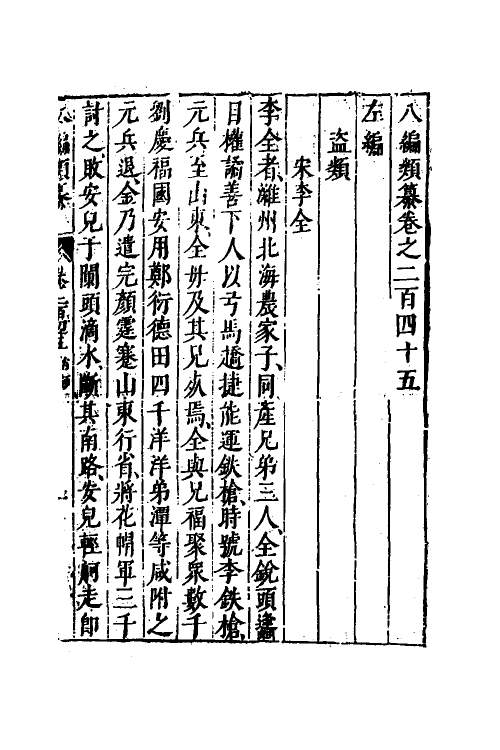 八編類纂卷之二百四十五
左編
盜類
宋李全
李全者濰州北海農家子同產兄弟三人全銳頭蠭
目權譎善下人以弓馬趫捷能運鉄槍時號李鉄槍
元兵至山東全母及其兄死焉全與兄福聚衆數千
劉慶福國安用鄭衍德田四千洋洋弟潭等咸附之
元兵退金乃遣完顏霆蹇山東行省將花帽軍三千
討之敗安兒于闌頭滴水斷其南路安兒輕舸走卽
八編類纂 卷